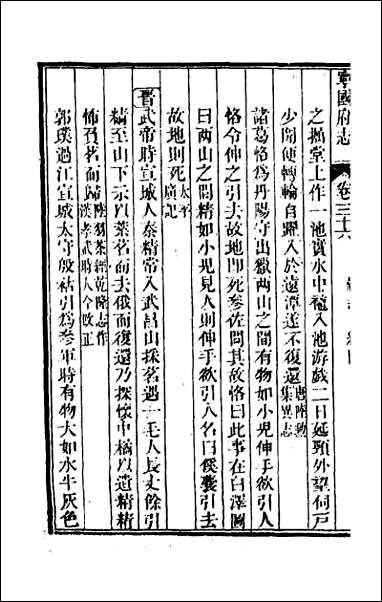 寧國府志 卷三十六
之拋堂上作一池實水中龍入池游戲二日延頸外望伺戸
少開便轉輪自躍入於遠潭遂不復還唐陸勲集異志
諸葛恪爲丹陽守出獵兩山之間有物如小兒伸手欲引人
恪令伸之引去故地即死參佐問其故恪曰此事在白澤圖
曰兩山之間精如小兒見人則伸手欲引人名曰傒囊引去
故地則死太平廣記
晉武帝時宣城人秦精常入武昌山採茗遇一毛人長丈餘引
精至山下示以叢茗而去俄而復還乃探懷中橘以遺精精
怖負茗而歸陸羽茶經乾隆志作漢孝武時人今改正
郭璞過江宣城太守殷祜引爲參軍時有物大如水牛灰色